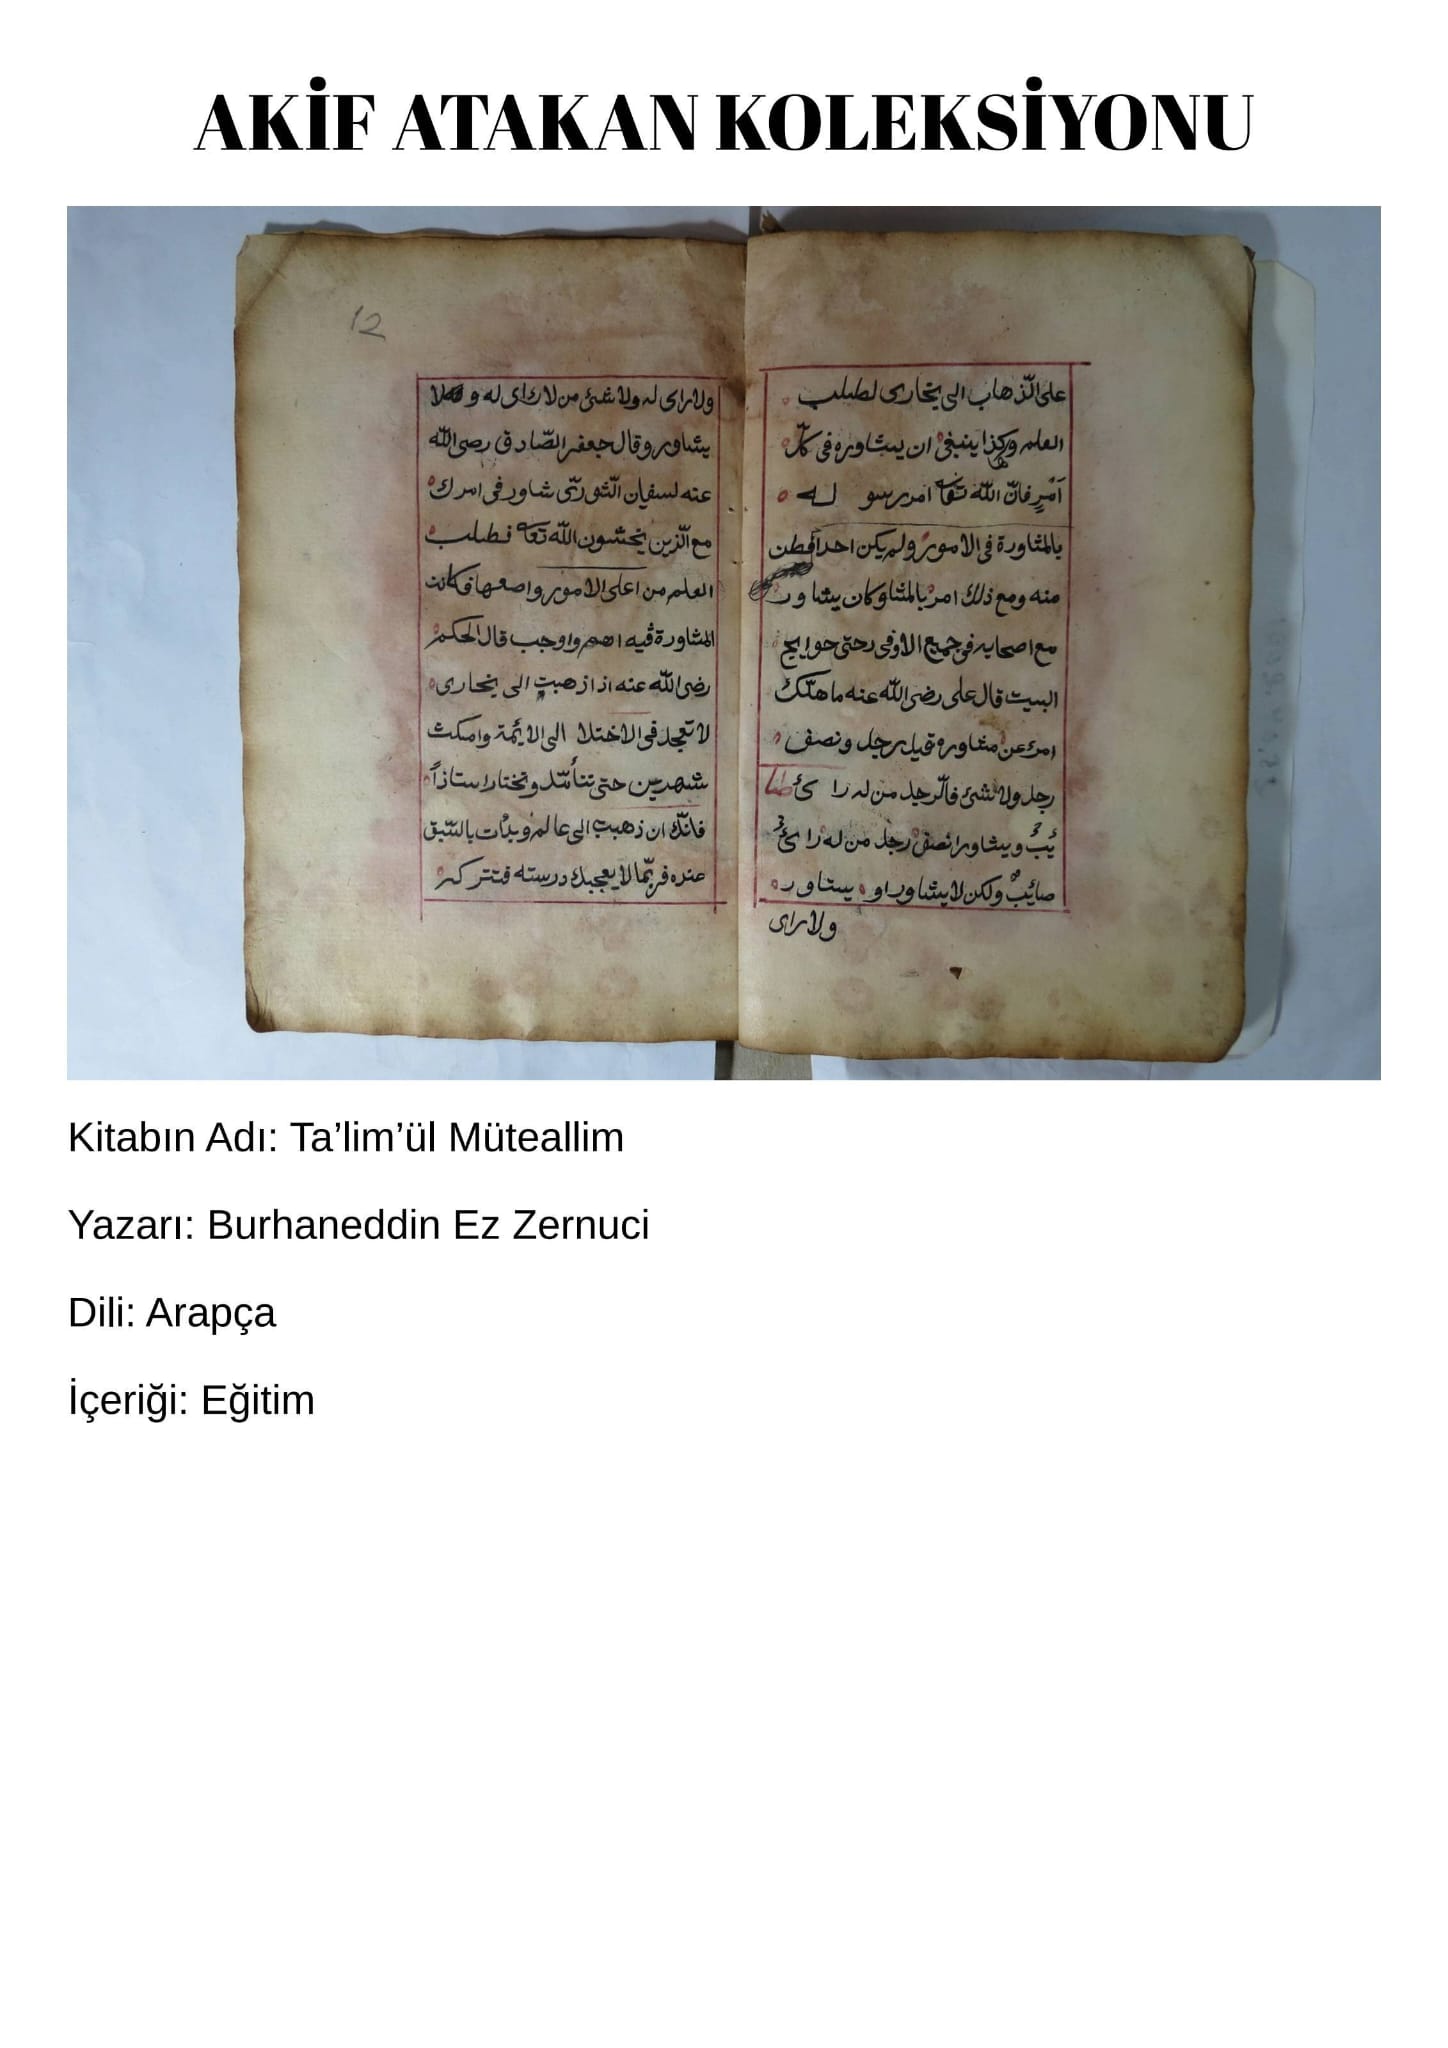 AKİF ATAKAN KOLEKSİYONU
على الذهاب الى بخارى لطلب
العلم وكذا ينبغى ان يشاوره فى كلّ
اَمْرٍ فانّ اللّه تعا امر رسو له
بالمشاورة فى الامور ولم يكن احدا فطن
منه ومع ذلك امر بالمشاو كان يشاور
مع اصحابه فى جميع حتى حوايج
البيت قال على رضى اللّه عنه ما هلك
امرء عن مشاوره قيل رجل ونصف
رجل ولا شئ فالرجل من له رائ صا
ئبٌ ويشاور نصف رجل من له رائ
صائبٌ ولكن لا يشاور او يستاور
ولا راى
12
ولا راى له ولا شئ من لا راى له و لا
يشاور وقال جعفر الصّادق رضى اللّه
عنه لسفيان الثّورىّ شاور فى امرك
مع الّذين يخشون اللّه تعا فطلب
العلم من اعلى الامور واصعبها فكانت
المشاورة فيه اهم واوجب قال الحكم
رضى اللّه عنه اذا ذهبت الى بخارى
لا تعجل فى الاختلا الى الايمة وامكث
شهرين حتى تتأمّل وتختار استاذاً
فانّك ان ذهبت الى عالم وبدأت بالسّبق
عنده فربّما لا يعجبك درسته فتتركه
Kitabın Adı: Ta’lim’ül Müteallim
Yazarı: Burhaneddin Ez Zernuci
Dili: Arapça
İçeriği: Eğitim